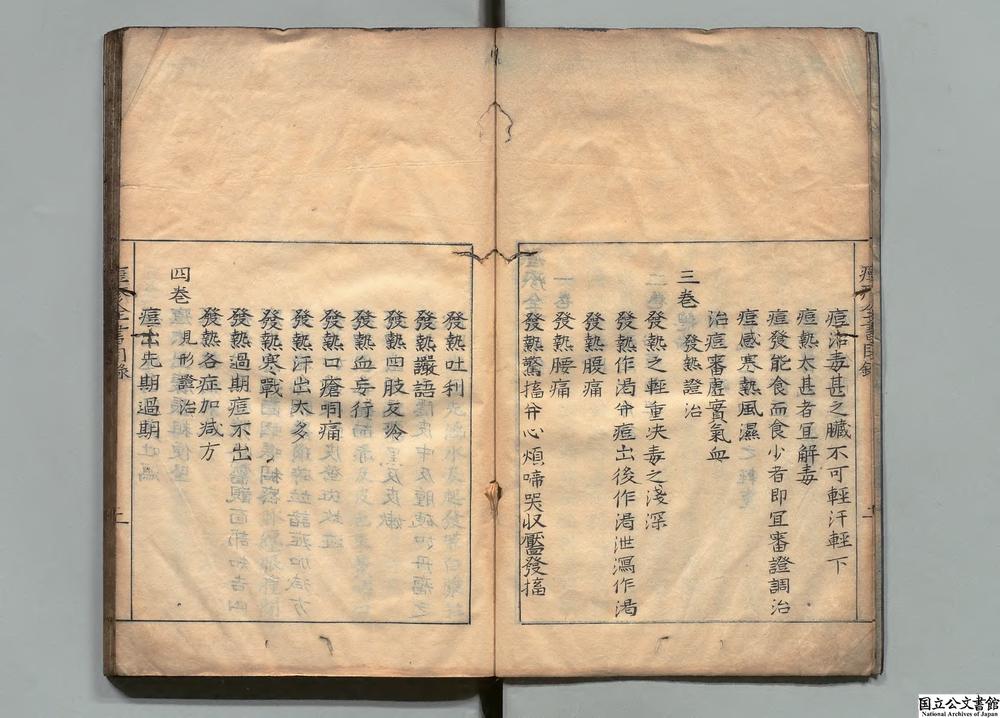 痘治毒甚之臟不可輕汗輕下
痘熱太甚者宜解毒
痘發能食而食少者即宜審證調治
痘感寒熱風濕
治痘審虛實氣血
三卷
發熱證治
發熱之輕重决毒之淺深
發熱作渴分痘出後作渴泄瀉作渴
發熱腰痛
發熱腹痛
發熱驚搐分心煩啼哭収靨發搐
發熱吐利
發熱譫語
發熱四肢反冷
發熱血妄行
發熱口瘡咽痛
發熱汗出太多
發熱寒戰
發熱過期痘不出
發熱各症加减方
四卷
見形證治
痘出先期過期
国立公文書館
National Archives of Japan